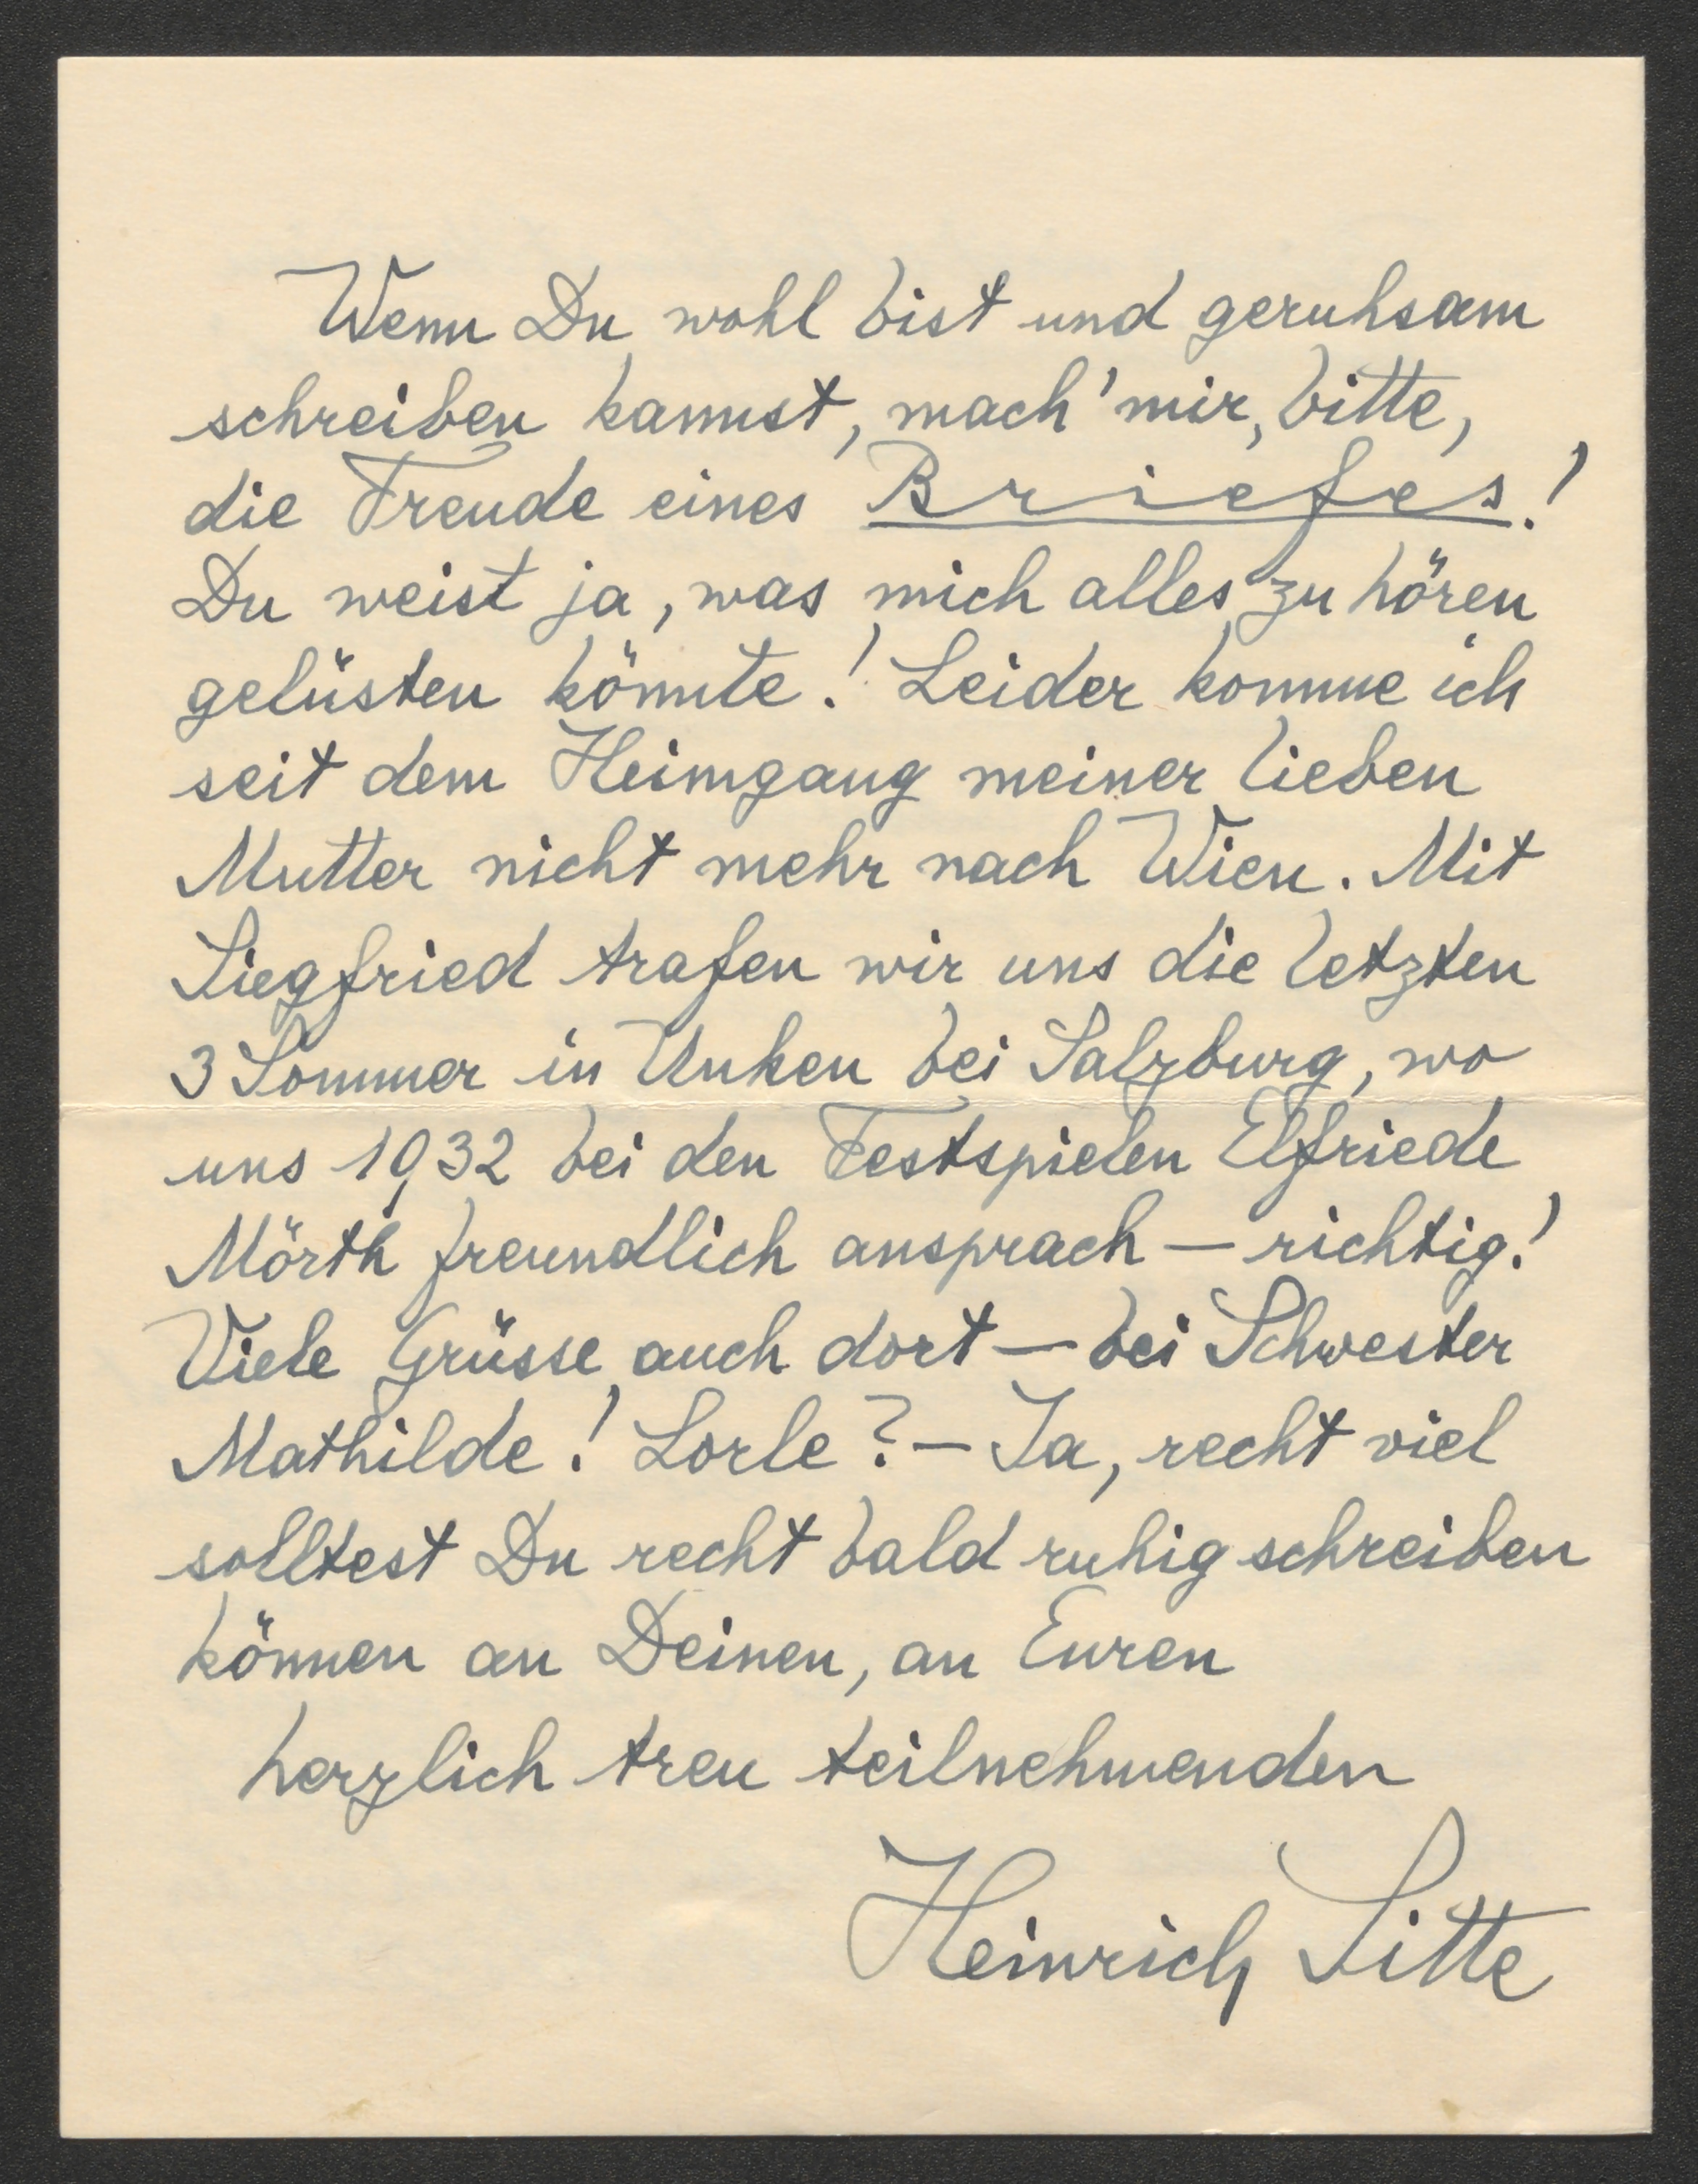 Wenn Du wohl bist und geruhsam
schreiben kannst, mach' mir, bitte,
die Freude eines Briefes!
Du weist ja, was mich alles zu hören
gelüsten könnte! Leider komme ich
seit dem Heimgang meiner lieben
Mutter nicht mehr nach Wien. Mit
Siegfried trafen wir uns die letzten
3 Sommer in Unken bei Salzburg, wo
uns 1932 bei den Festspielen Elfriede
Mörth freundlich ansprach — richtig!
Viele Grüsse, auch dort — bei Schwester
Mathilde! Lorle? — Ja, recht viel
solltest Du recht bald ruhig schreiben
können an Deinen, an Euren
herzlich treu teilnehmenden
Heinrich Sitte